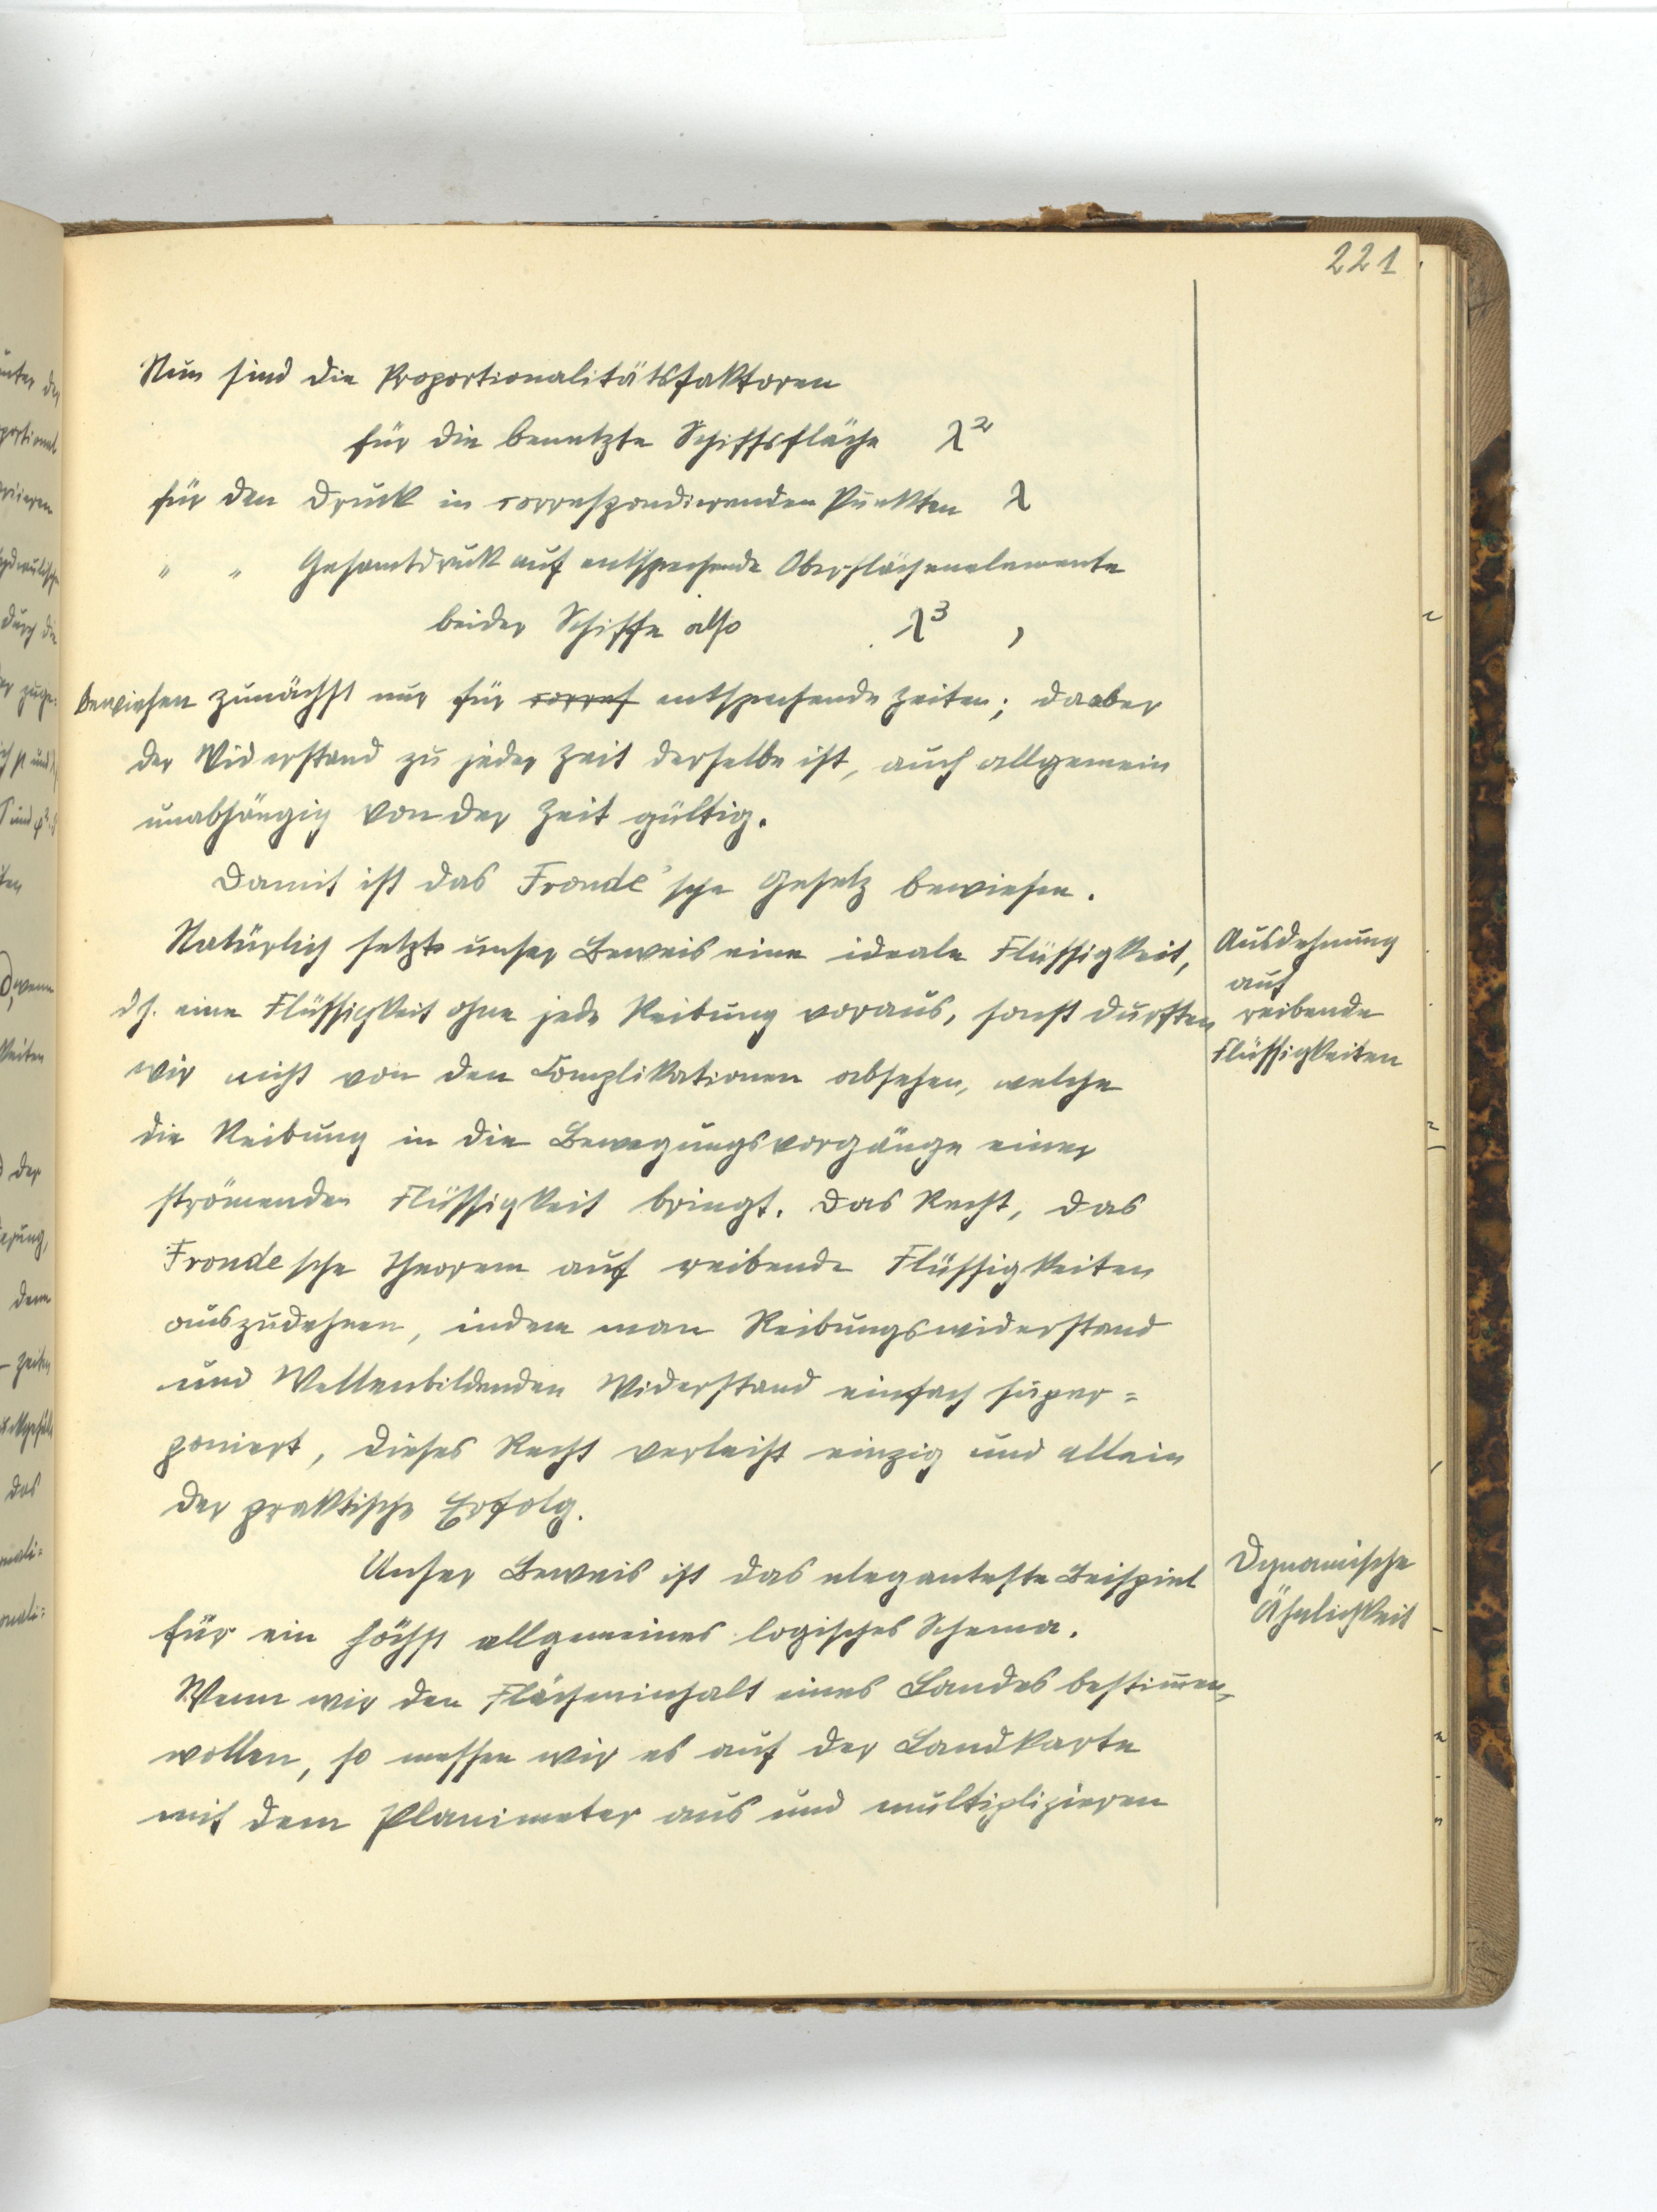 221
Nun sind die Proportionalitätsfaktoren
für die benetzte Schiffsfläche λ²
für den Druck in correspondierenden Punkten λ
" " Gesamtdruck auf entsprechende Oberflächenelemente
beider Schiffe also λ³ ,
bewiesen zunächst nur für corres entsprechende Zeiten; da aber
der Widerstand zu jeder Zeit derselbe ist, auch allgemein
unabhängig von der Zeit gültig.
Damit ist das Froude'sche Gesetz bewiesen.
Natürlich setzt unser Beweis eine ideale Flüssigkeit,
dh. eine Flüssigkeit ohne jede Reibung voraus, sonst durften
wir nicht von den Complikationen absehen, welche
die Reibung in die Bewegungsvorgänge einer
strömenden Flüssigkeit bringt. Das Recht, das
Froudesche Theorem auf reibende Flüssigkeiten
auszudehnen, indem man Reibungswiderstand
und Wellenbildenden Widerstand einfach super=
poniert, dieses Recht verleiht einzig und allein
der praktische Erfolg.
Unser Beweis ist das eleganteste Beispiel
für ein höchst allgemeines logisches Schema.
Wenn wir den Flächeninhalt eines Landes bestim̅en
wollen, so messen wir es auf der Landkarte
mit dem Planimeter aus und multiplizieren
Ausdehnung
auf
reibende
Flüssigkeiten
Dynamische
Ähnlichkeit